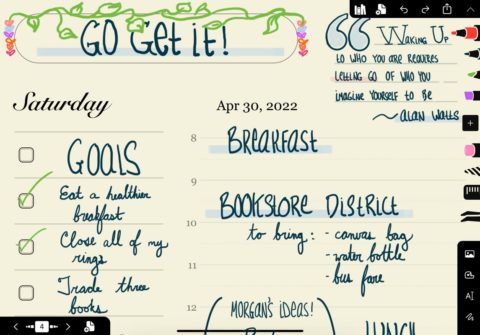 GO GET IT!
WAKING UP
TO WHO YOU ARE REQUIRES
LETTING GO OF WHO YOU
IMAGINE YOURSELF TO BE
~ALAN WATTS
Saturday
Apr 30, 2022
GOALS
Eat a healthier
breakfast
Close all of my
rings
Trade three
books
8
BREAKFAST
9
BOOKSTORE DISTRICT
10
to bring: - canvas bag
- water bottle
11
- bus fare
12
(MORGAN'S IDEAS!)
LUNCH
4